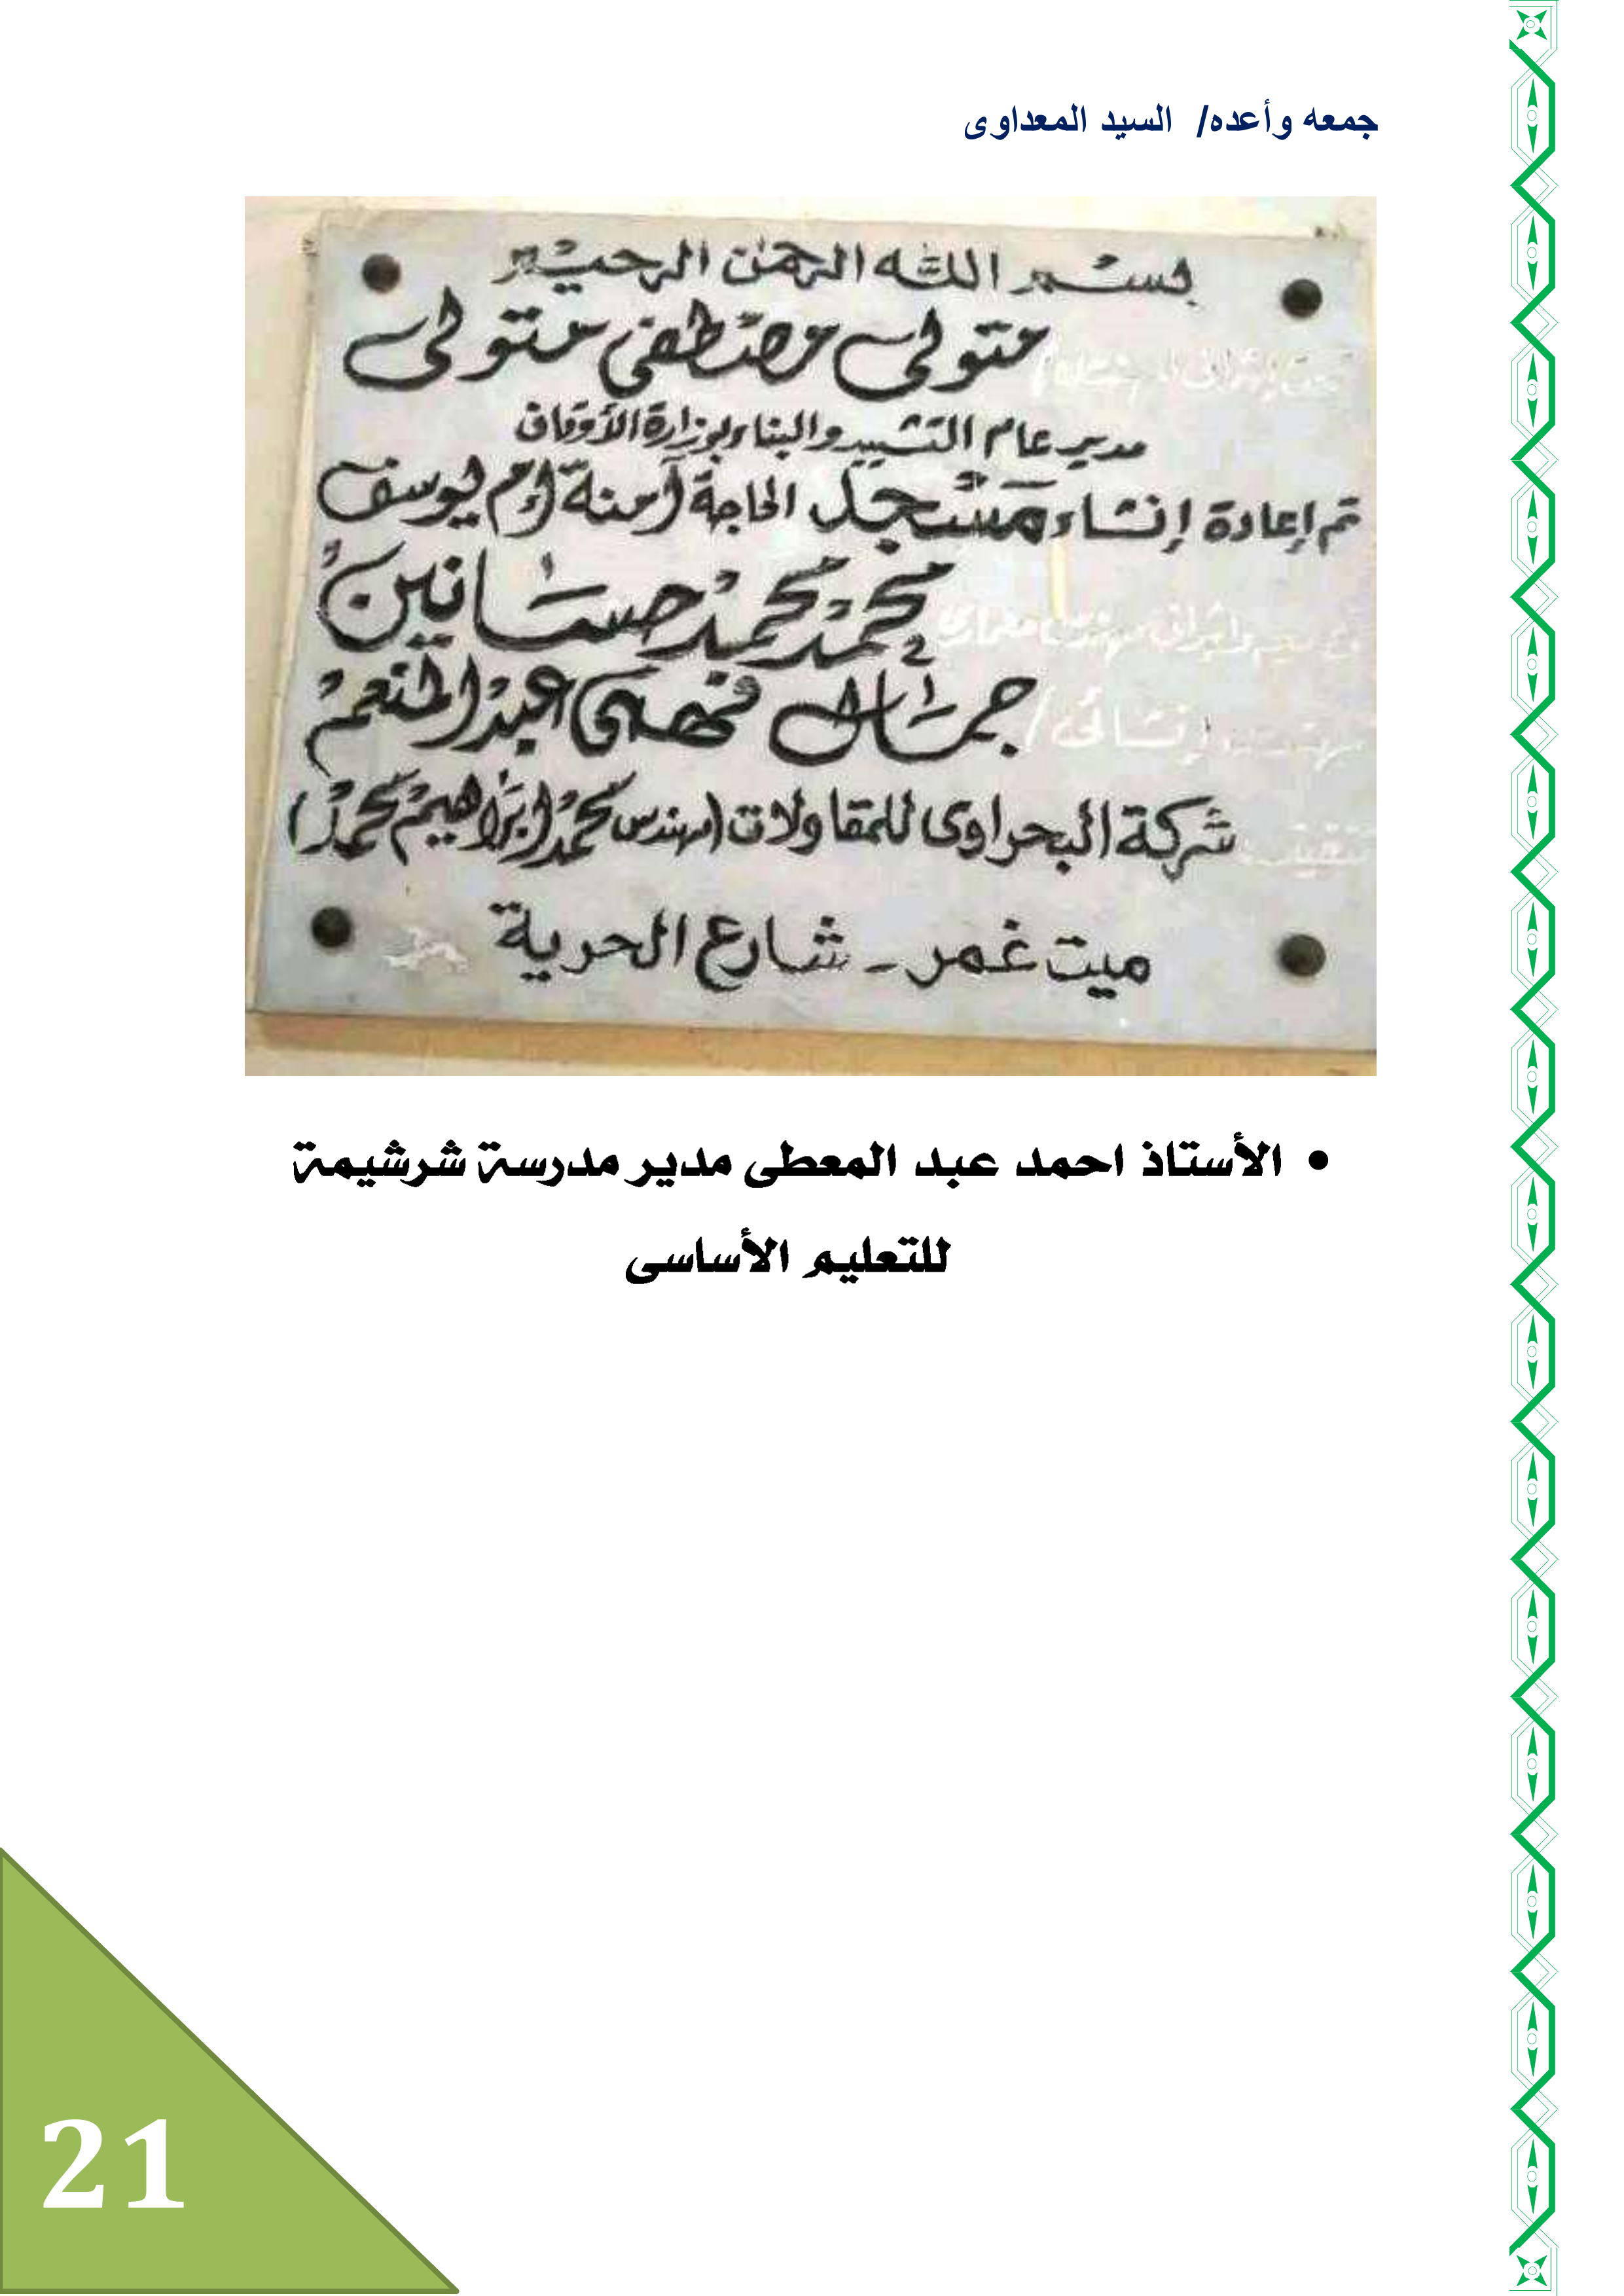 جمعه وأعده/ السيد المعداوى
بسم الله الرحمن الرحيم
متولى مصطفى متولى
مدير عام التشييد والبناء بوزارة الأوقاف
تم إعادة إنشاء مسجد الحاجة آمنة أم يوسف
محمد محمد حسانين
إنشائى / جمال فهمى عبد المنعم
شركة البحراوى للمقاولات (مهندس محمد إبراهيم محمد)
ميت غمر - شارع الحرية
• الأستاذ احمد عبد المعطى مدير مدرسة شرشيمة
للتعليم الأساسى
21